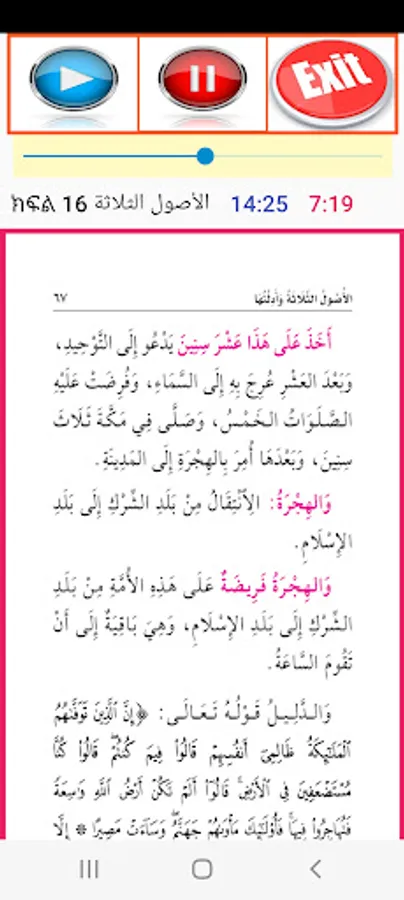 Exit
ክፍል 16 الأصول الثلاثة 14:25 7:19
الأُصُولُ الثَّلَاثَةُ وَأَدِلَّتُهَا ٦٧
أَخَذَ عَلَى هَذَا عَشْرَ سِنِينَ يَدْعُو إِلَى التَّوْحِيدِ،
وَبَعْدَ العَشْرِ عُرِجَ بِهِ إِلَى السَّمَاءِ، وَفُرِضَتْ عَلَيْهِ
الصَّلَوَاتُ الخَمْسُ، وَصَلَّى فِي مَكَّةَ ثَلَاثَ
سِنِينَ، وَبَعْدَهَا أُمِرَ بِالهِجْرَةِ إِلَى المَدِينَةِ.
وَالهِجْرَةُ: الِانْتِقَالُ مِنْ بَلَدِ الشِّرْكِ إِلَى بَلَدِ
الإِسْلَامِ.
وَالهِجْرَةُ فَرِيضَةٌ عَلَى هَذِهِ الأُمَّةِ مِنْ بَلَدِ
الشِّرْكِ إِلَى بَلَدِ الإِسْلَامِ، وَهِيَ بَاقِيَةٌ إِلَى أَنْ
تَقُومَ السَّاعَةُ.
وَالدَّلِيلُ قَوْلُهُ تَعَالَى: ﴿إِنَّ ٱلَّذِينَ تَوَفَّىٰهُمُ
ٱلْمَلَٰٓئِكَةُ ظَالِمِىٓ أَنفُسِهِمْ قَالُوا۟ فِيمَ كُنتُمْ ۖ قَالُوا۟ كُنَّا
مُسْتَضْعَفِينَ فِى ٱلْأَرْضِ ۚ قَالُوٓا۟ أَلَمْ تَكُنْ أَرْضُ ٱللَّهِ وَٰسِعَةً
فَتُهَاجِرُوا۟ فِيهَا ۚ فَأُو۟لَٰٓئِكَ مَأْوَىٰهُمْ جَهَنَّمُ ۖ وَسَآءَتْ مَصِيرًا * إِلَّا